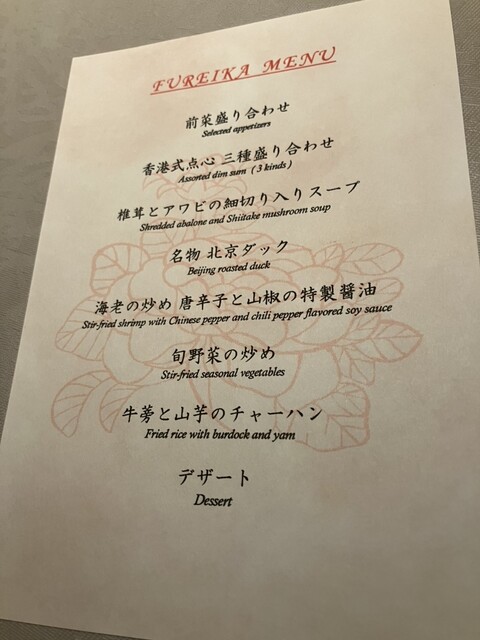 FUREIKA MENU
前菜盛り合わせ
Selected appetizers
香港式点心 三種盛り合わせ
Assorted dim sum ( 3 kinds )
椎茸とアワビの細切り入りスープ
Shredded abalone and Shiitake mushroom soup
名物 北京ダック
Beijing roasted duck
海老の炒め 唐辛子と山椒の特製醤油
Stir-fried shrimp with Chinese pepper and chili pepper flavored soy sauce
旬野菜の炒め
Stir-fried seasonal vegetables
牛蒡と山芋のチャーハン
Fried rice with burdock and yam
デザート
Dessert